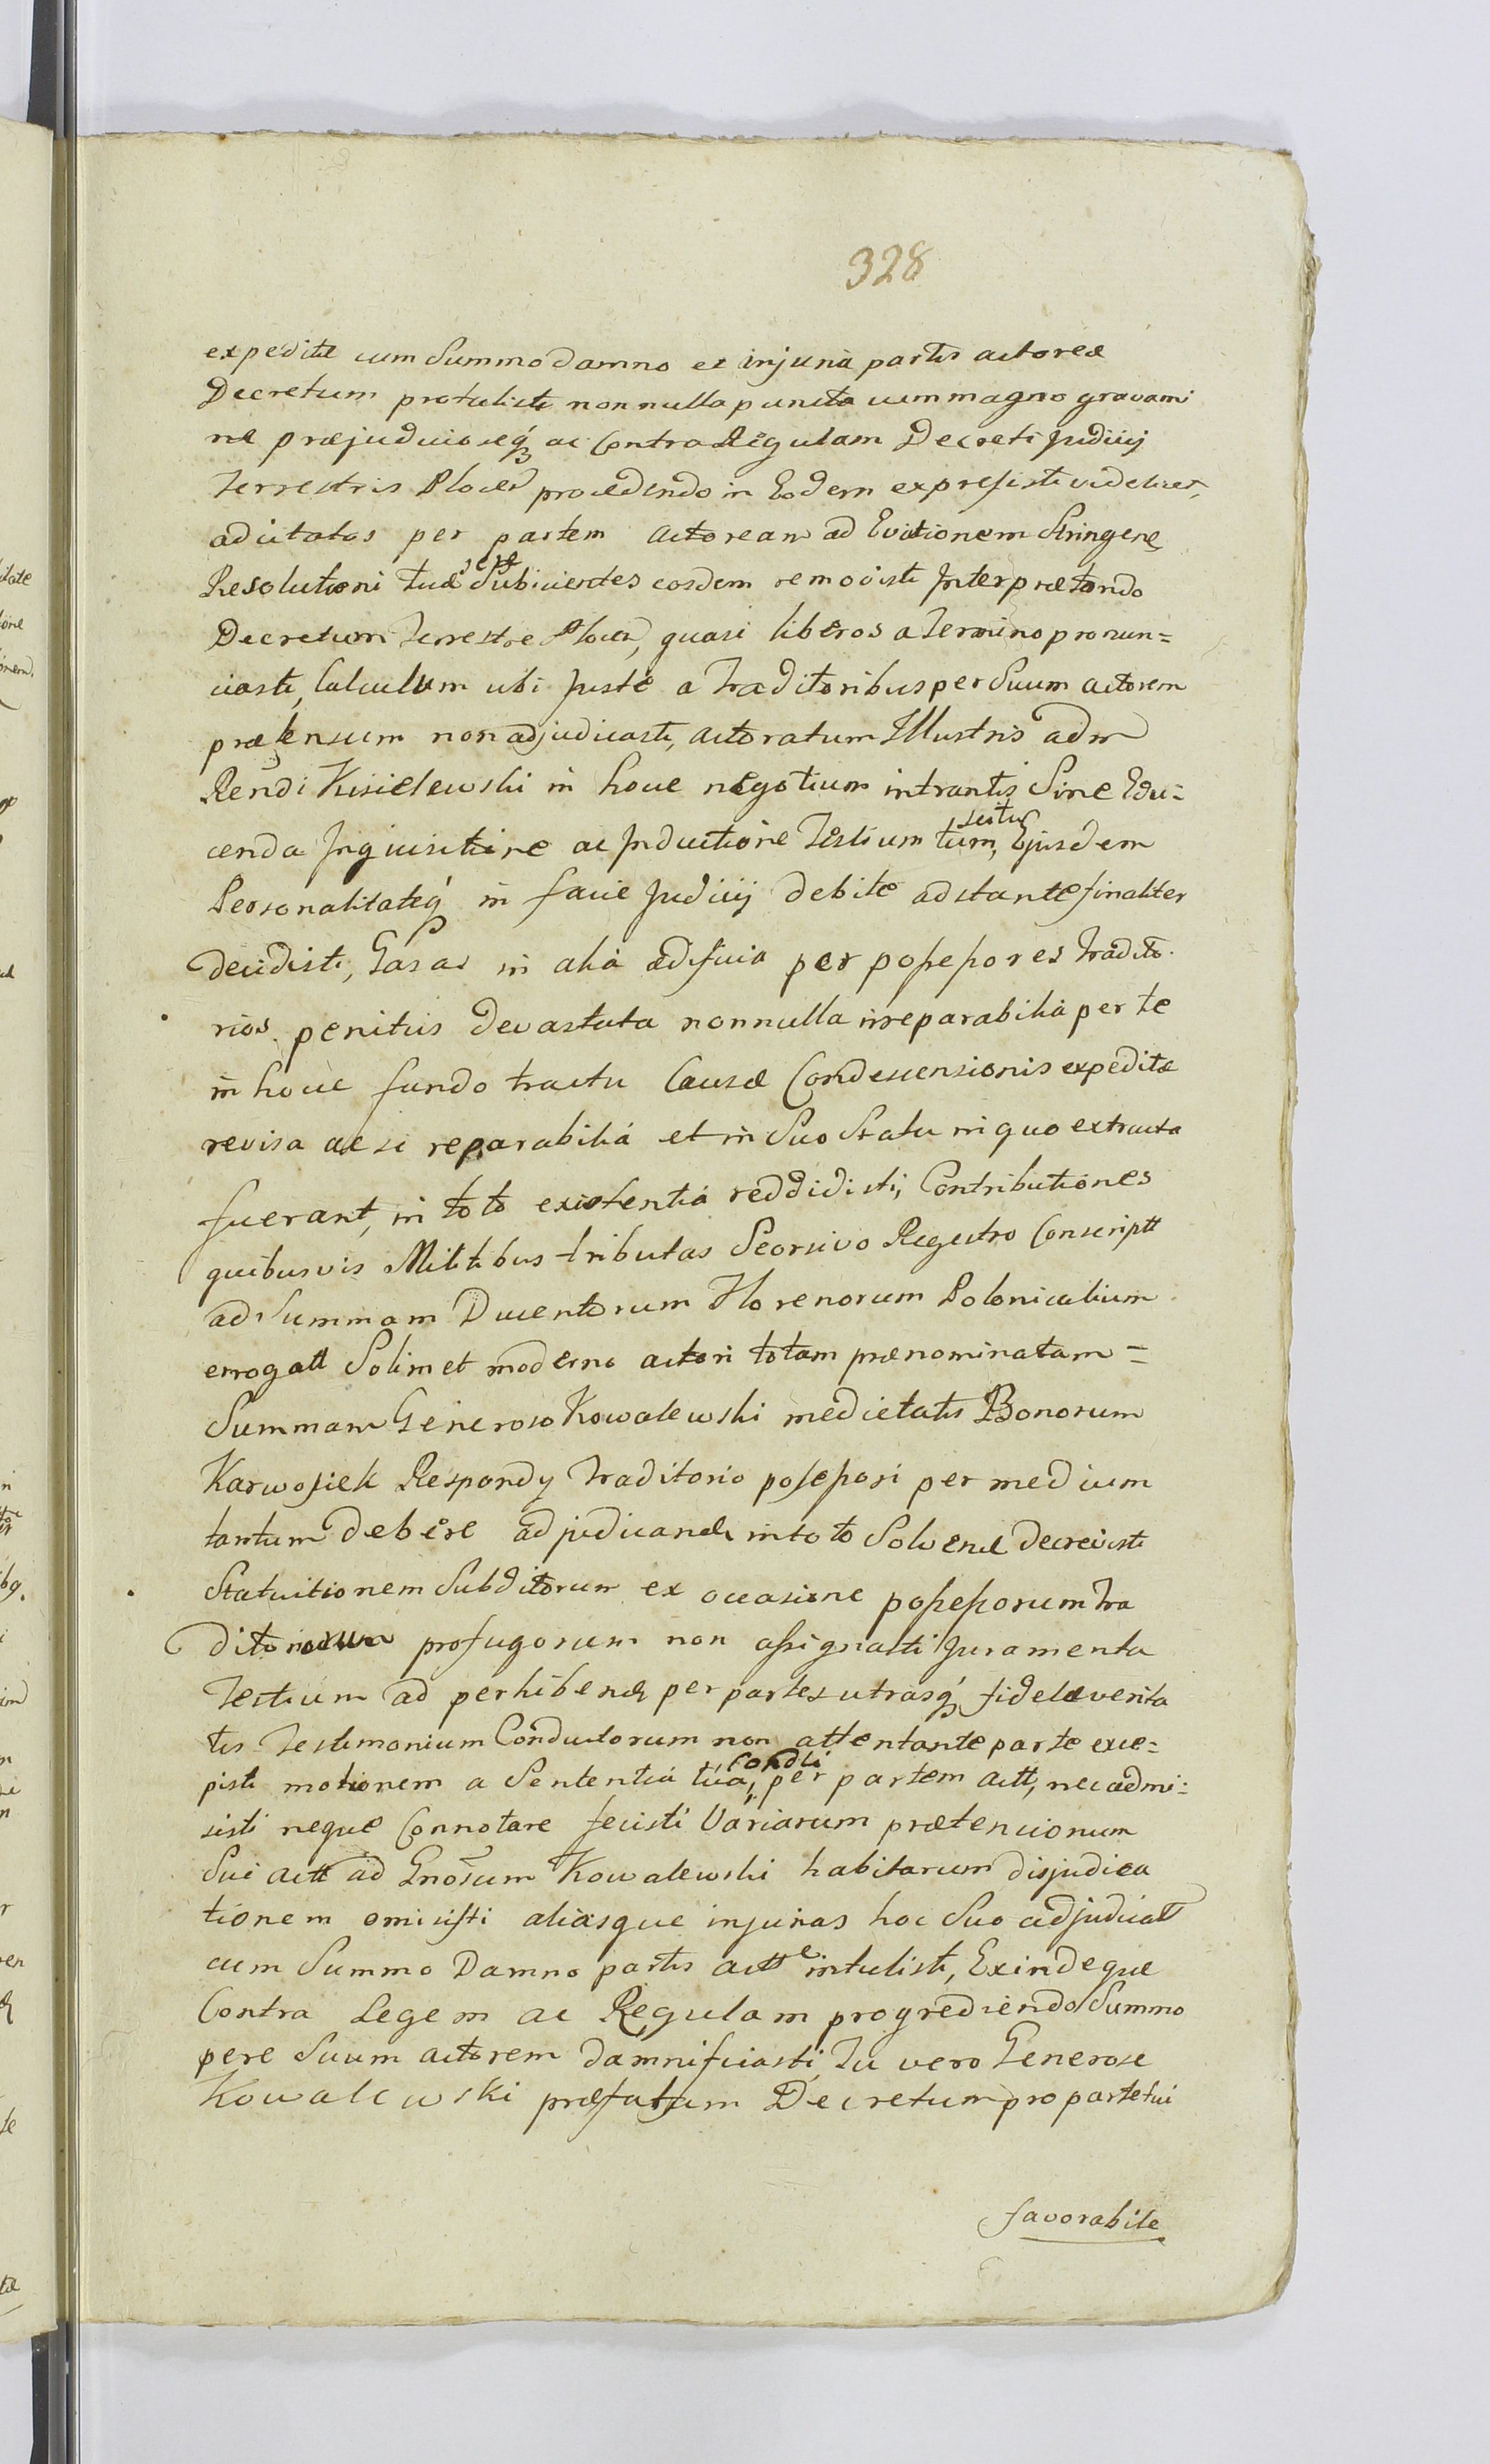 328
expeditæ cum Summo damno et injuria partis actoreæ
Decretum protulisti nonnulla puncta cum magno gravami
ne præjudicioseq́ ac Contra Regulam Decreti Judicij
Terrestris Ploceñ procedendo in Eodem expressisti videlicet,
adcitatos per partem actoream ad Evictionem Stringenę
Resolutioni tuæ sese Subicientes eosdem removisti Interpretando
Decretum Terrestre Ploceñ, quasi liberos a Termino pronun=
ciasti, Calculum ubi Justé a Traditoribus per Suum actorem
prætensum non adjudicasti, actoratum Illustris adm
Rendi Kisielewski in hocce negotium intrantis Sine Edu=
cenda Inquisitione ac Inductione Testium tum, scitu Ejusdem
Personalitateq́ in facie Judicij debite adstante finaliter
decidisti, Casas in alia ædificia per possessores tradito
rios penitus devastata nonnulla irreparabilia per te
in hocce fundo tractu Causæ Condescensionis expeditæ
revisa ac si reparabilia et in Suo Statu in quo extracta
fuerant, in toto existentia reddidisti, Contributiones
quibusvis Militibus tributas Seorsivo Regestro Conscriptt
ad Summam Ducentorum Florenorum Polonicalium
errogatt Solimet moderno actori totam prænominatam =
Summam Generoso Kowalewski medietatis Bonorum
Karwosiek Respondy Traditorio possessori per medium
tantum debere adjudicandæ in toto Solvere decrevisti
Statuitionem Subditorum ex occasione possessorum tra
ditoriorum profugorum non assignasti Juramenta
Testium ad perhibenđ per partes utrasq́ fidele verita
tis Testimonium Conductorum non attentante parte exce=
pisti motionem a Sententia tua, Condli per partem actt, nec admi=
sisti neque Connotare fecisti Variarum prætencionum
Sui actt ad Gnosum Kowalewski habitarum disjudica
tionem omisisti aliasque injurias hoc Suo adjudicatt
cum Summo Damno partis actte intulisti, Exindeque
Contra Legem ac Regulam progrediendo Summo
pere Suum actorem damnificasti, Tu vero Generose
Kowalewski præfatum Decretum pro parte tui
favorabile